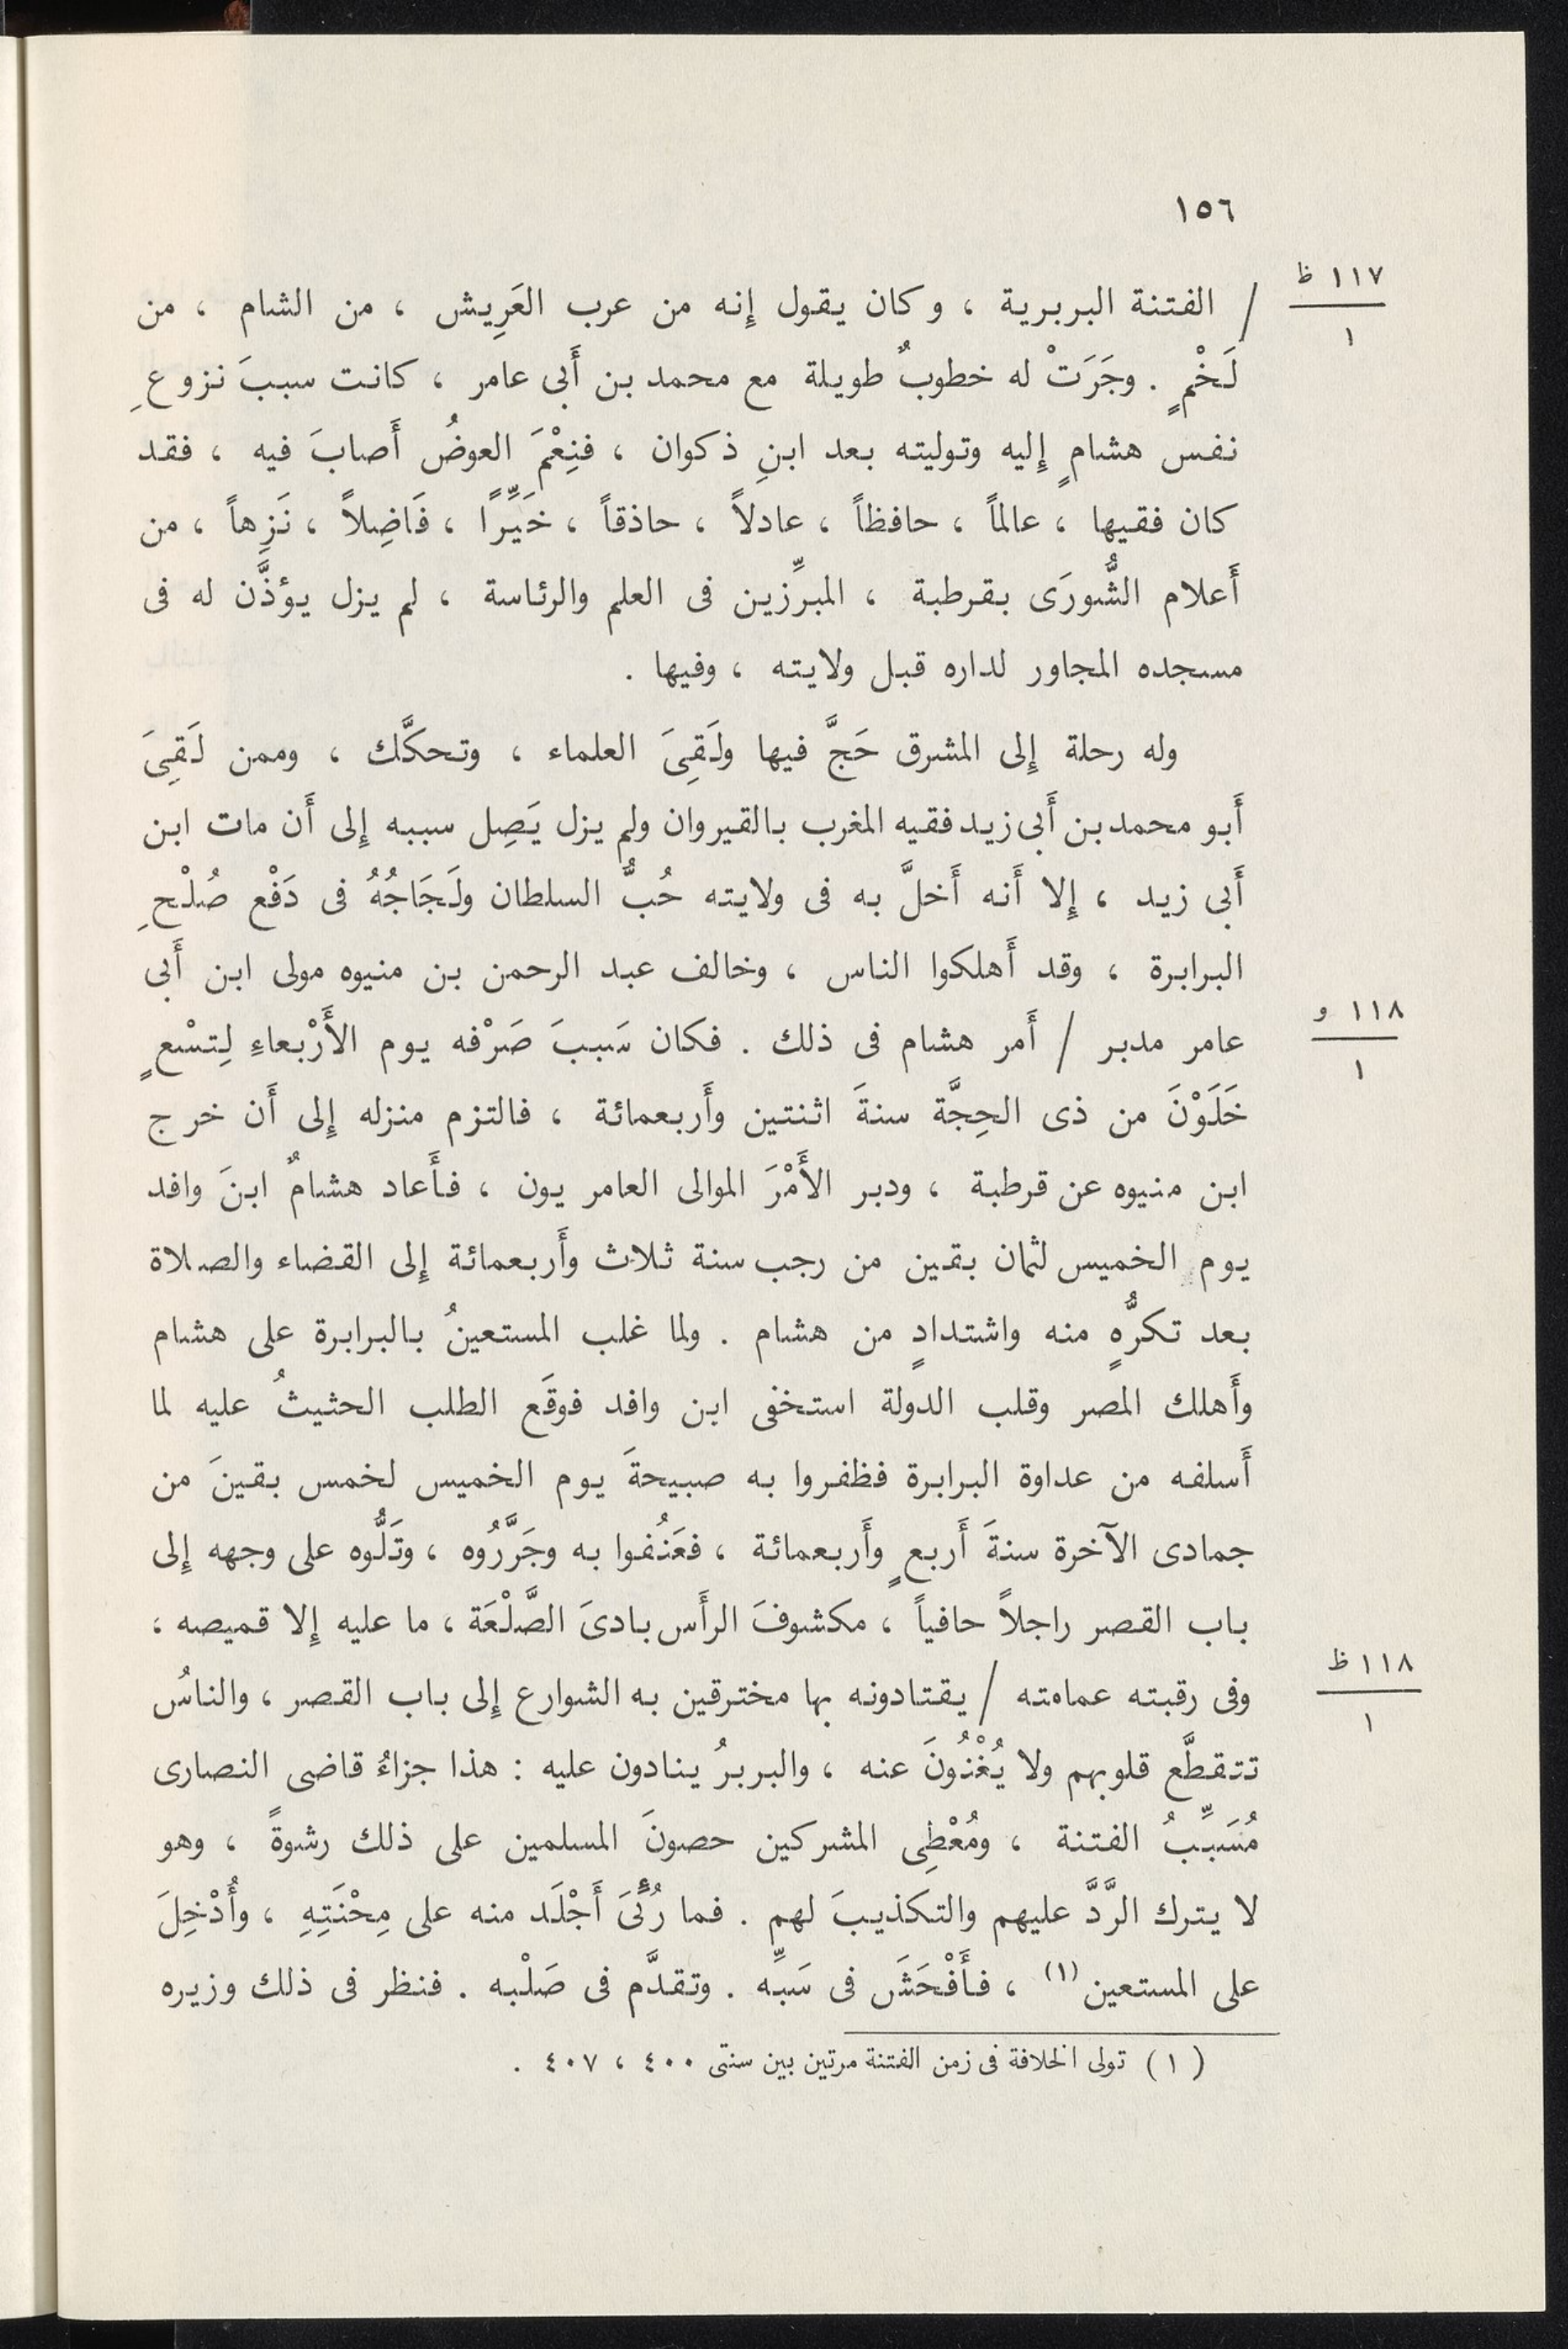 ١٥٦
١١٧ ظ
١
/ الفتنة البربرية ، وكان يقول إِنه من عرب العَرِيش ، من الشام ، من
لَخْمٍ . وجَرَتْ له خطوبٌ طويلة مع محمد بن أَبى عامر ، كانت سببَ نزوعِ
نفس هشامٍ إِليه وتوليته بعد ابنِ ذكوان ، فنِعْمَ العوضُ أَصابَ فيه ، فقد
كان فقيها ، عالماً ، حافظاً ، عادلاً ، حاذقاً ، خَيِّرًا ، فَاضِلاً ، نَزِهاً ، من
أَعلام الشُّورَى بقرطبة ، المبرِّزين فى العلم والرئاسة ، لم يزل يؤذَّن له فى
مسجده المجاور لداره قبل ولايته ، وفيها .
وله رحلة إِلى المشرق حَجَّ فيها ولَقِىَ العلماء ، وتحكَّك ، وممن لَقِىَ
أَبو محمد بن أَبى زيد فقيه المغرب بالقيروان ولم يزل يَصِل سببه إِلى أَن مات ابن
أَبى زيد ، إِلا أَنه أَخلَّ به فى ولايته حُبُّ السلطان ولَجَاجُهُ فى دَفْع صُلْحِ
البرابرة ، وقد أَهلكوا الناس ، وخالف عبد الرحمن بن منيوه مولى ابن أَبى
١١٨ و
١
عامر مدبر / أَمر هشام فى ذلك . فكان سَببَ صَرْفه يوم الأَرْبعاءِ لِتسْعٍ
خَلَوْنَ من ذى الحِجَّة سنةَ اثنتين وأَربعمائة ، فالتزم منزله إِلى أَن خرج
ابن منيوه عن قرطبة ، ودبر الأَمْرَ الموالى العامريون ، فأَعاد هشامٌ ابنَ وافد
يوم الخميس لثمان بقين من رجب سنة ثلاث وأَربعمائة إِلى القضاء والصلاة
بعد تكرُّهٍ منه واشتدادٍ من هشام . ولما غلب المستعينُ بالبرابرة على هشام
وأَهلك المصر وقلب الدولة استخفى ابن وافد فوقَع الطلب الحثيثُ عليه لما
أَسلفه من عداوة البرابرة فظفروا به صبيحةَ يوم الخميس لخمس بقينَ من
جمادى الآخرة سنةَ أَربعٍ وأَربعمائة ، فعَنُفوا به وجَرَّرُوه ، وتَلُّوه على وجهه إِلى
باب القصر راجلاً حافياً ، مكشوفَ الرأَس بادىَ الصَّلْعَة ، ما عليه إِلا قميصه ،
١١٨ ظ
١
وفى رقبته عمامته / يقتادونه بها مخترقين به الشوارع إِلى باب القصر ، والناسُ
تتقطَّع قلوبهم ولا يُغْنُونَ عنه ، والبربرُ ينادون عليه : هذا جزاءُ قاضى النصارى
مُسَبِّبُ الفتنة ، ومُعْطِى المشركين حصونَ المسلمين على ذلك رشوةً ، وهو
لا يترك الرَّدَّ عليهم والتكذيبَ لهم . فما رُئِىَ أَجْلَد منه على مِحْنَتِهِ ، وأُدْخِلَ
على المستعين (١) ، فأَفْحَشَ فى سَبِّه . وتقدَّم فى صَلْبه . فنظر فى ذلك وزيره
( ١ ) تولى الخلافة فى زمن الفتنة مرتين بين سنتى ٤٠٠ ، ٤٠٧ .